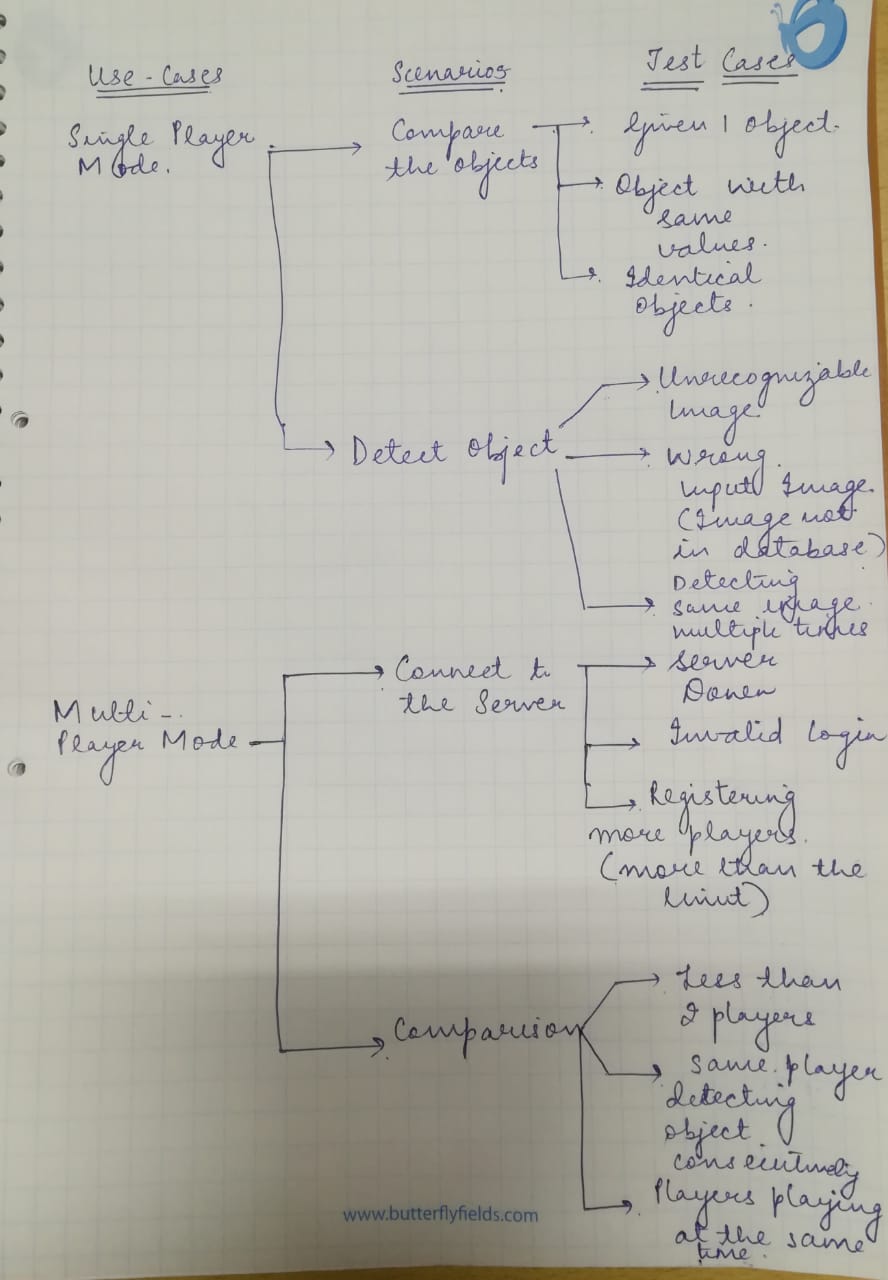 Use-Cases
Scenarios
Test Cases
Single Player
Mode.
Compare
the objects
Given 1 object.
Object with
same
values.
Identical
objects.
Detect Object
Unrecognizable
Image
Wrong
input Image.
(Image not
in database)
Detecting
same image
multiple times
Multi-
Player Mode
Connect to
the Server
Server
Down
Invalid Login
Registering
more players.
(more than the
limit)
Comparision
Less than
2 players
Same player
detecting
object
consecutively
Players playing
at the same
time.
www.butterflyfields.com